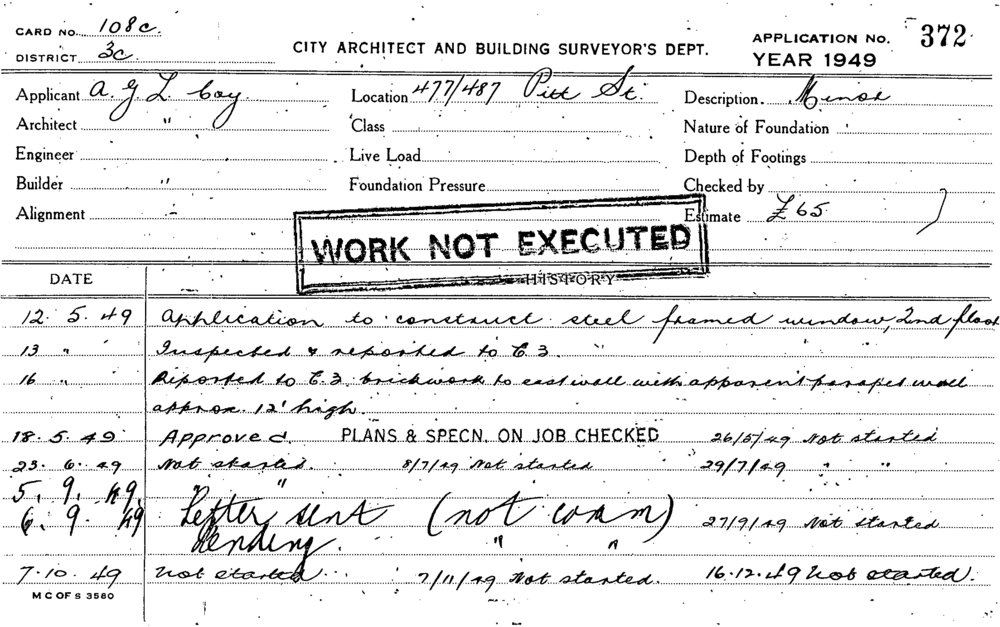 CARD NO. 108c.
DISTRICT 3c
CITY ARCHITECT AND BUILDING SURVEYOR'S DEPT.
APPLICATION NO. 372
YEAR 1949
Applicant A. G. L. Coy. Location 477/487 Pitt St. Description. Minor
Architect " Class Nature of Foundation
Engineer Live Load Depth of Footings
Builder " Foundation Pressure Checked by
Alignment Estimate £65
WORK NOT EXECUTED
DATE HISTORY
12. 5. 49 Application to construct steel framed window, 2nd floor
13 " Inspected & reported to C.3.
16 " Reported to C.3. brickwork to east wall with apparent parapet wall
approx. 12' high.
18. 5. 49 Approved. PLANS & SPECN. ON JOB CHECKED 26/5/49 Not started
23. 6. 49 Not started. 8/7/49 Not started 29/7/49 " "
5. 9. 49. " "
6. 9. 49 Letter sent (not comm) 27/9/49 Not started
Pending. " "
7. 10. 49 Not started 7/11/49 Not started. 16.12.49 Not started.
M C OF S 3580